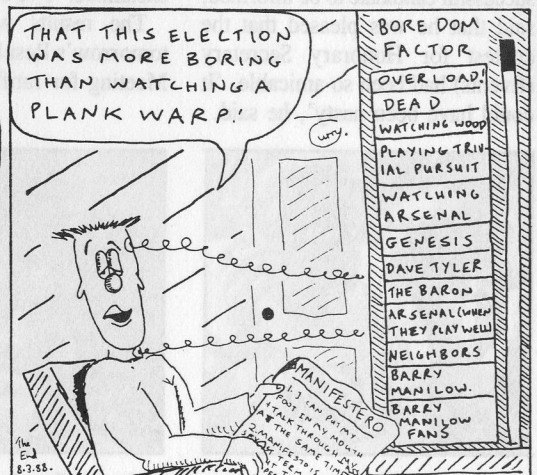 THAT THIS ELECTION
WAS MORE BORING
THAN WATCHING A
PLANK WARP!
BOREDOM
FACTOR
OVERLOAD!
DEAD
WATCHING WOOD
PLAYING TRIV-
IAL PURSUIT
WATCHING
ARSENAL
GENESIS
DAVE TYLER
THE BARON
ARSENAL (WHEN
THEY PLAY WELL)
NEIGHBORS
BARRY
MANILOW.
BARRY
MANILOW
FANS
MANIFESTERO
1. I CAN PUT MY
FOOT IN MY MOUTH
+ TALK THROUGH MY
AT THE SAME TIME
2. MANIFESTO IS
The
End
8.3.88.